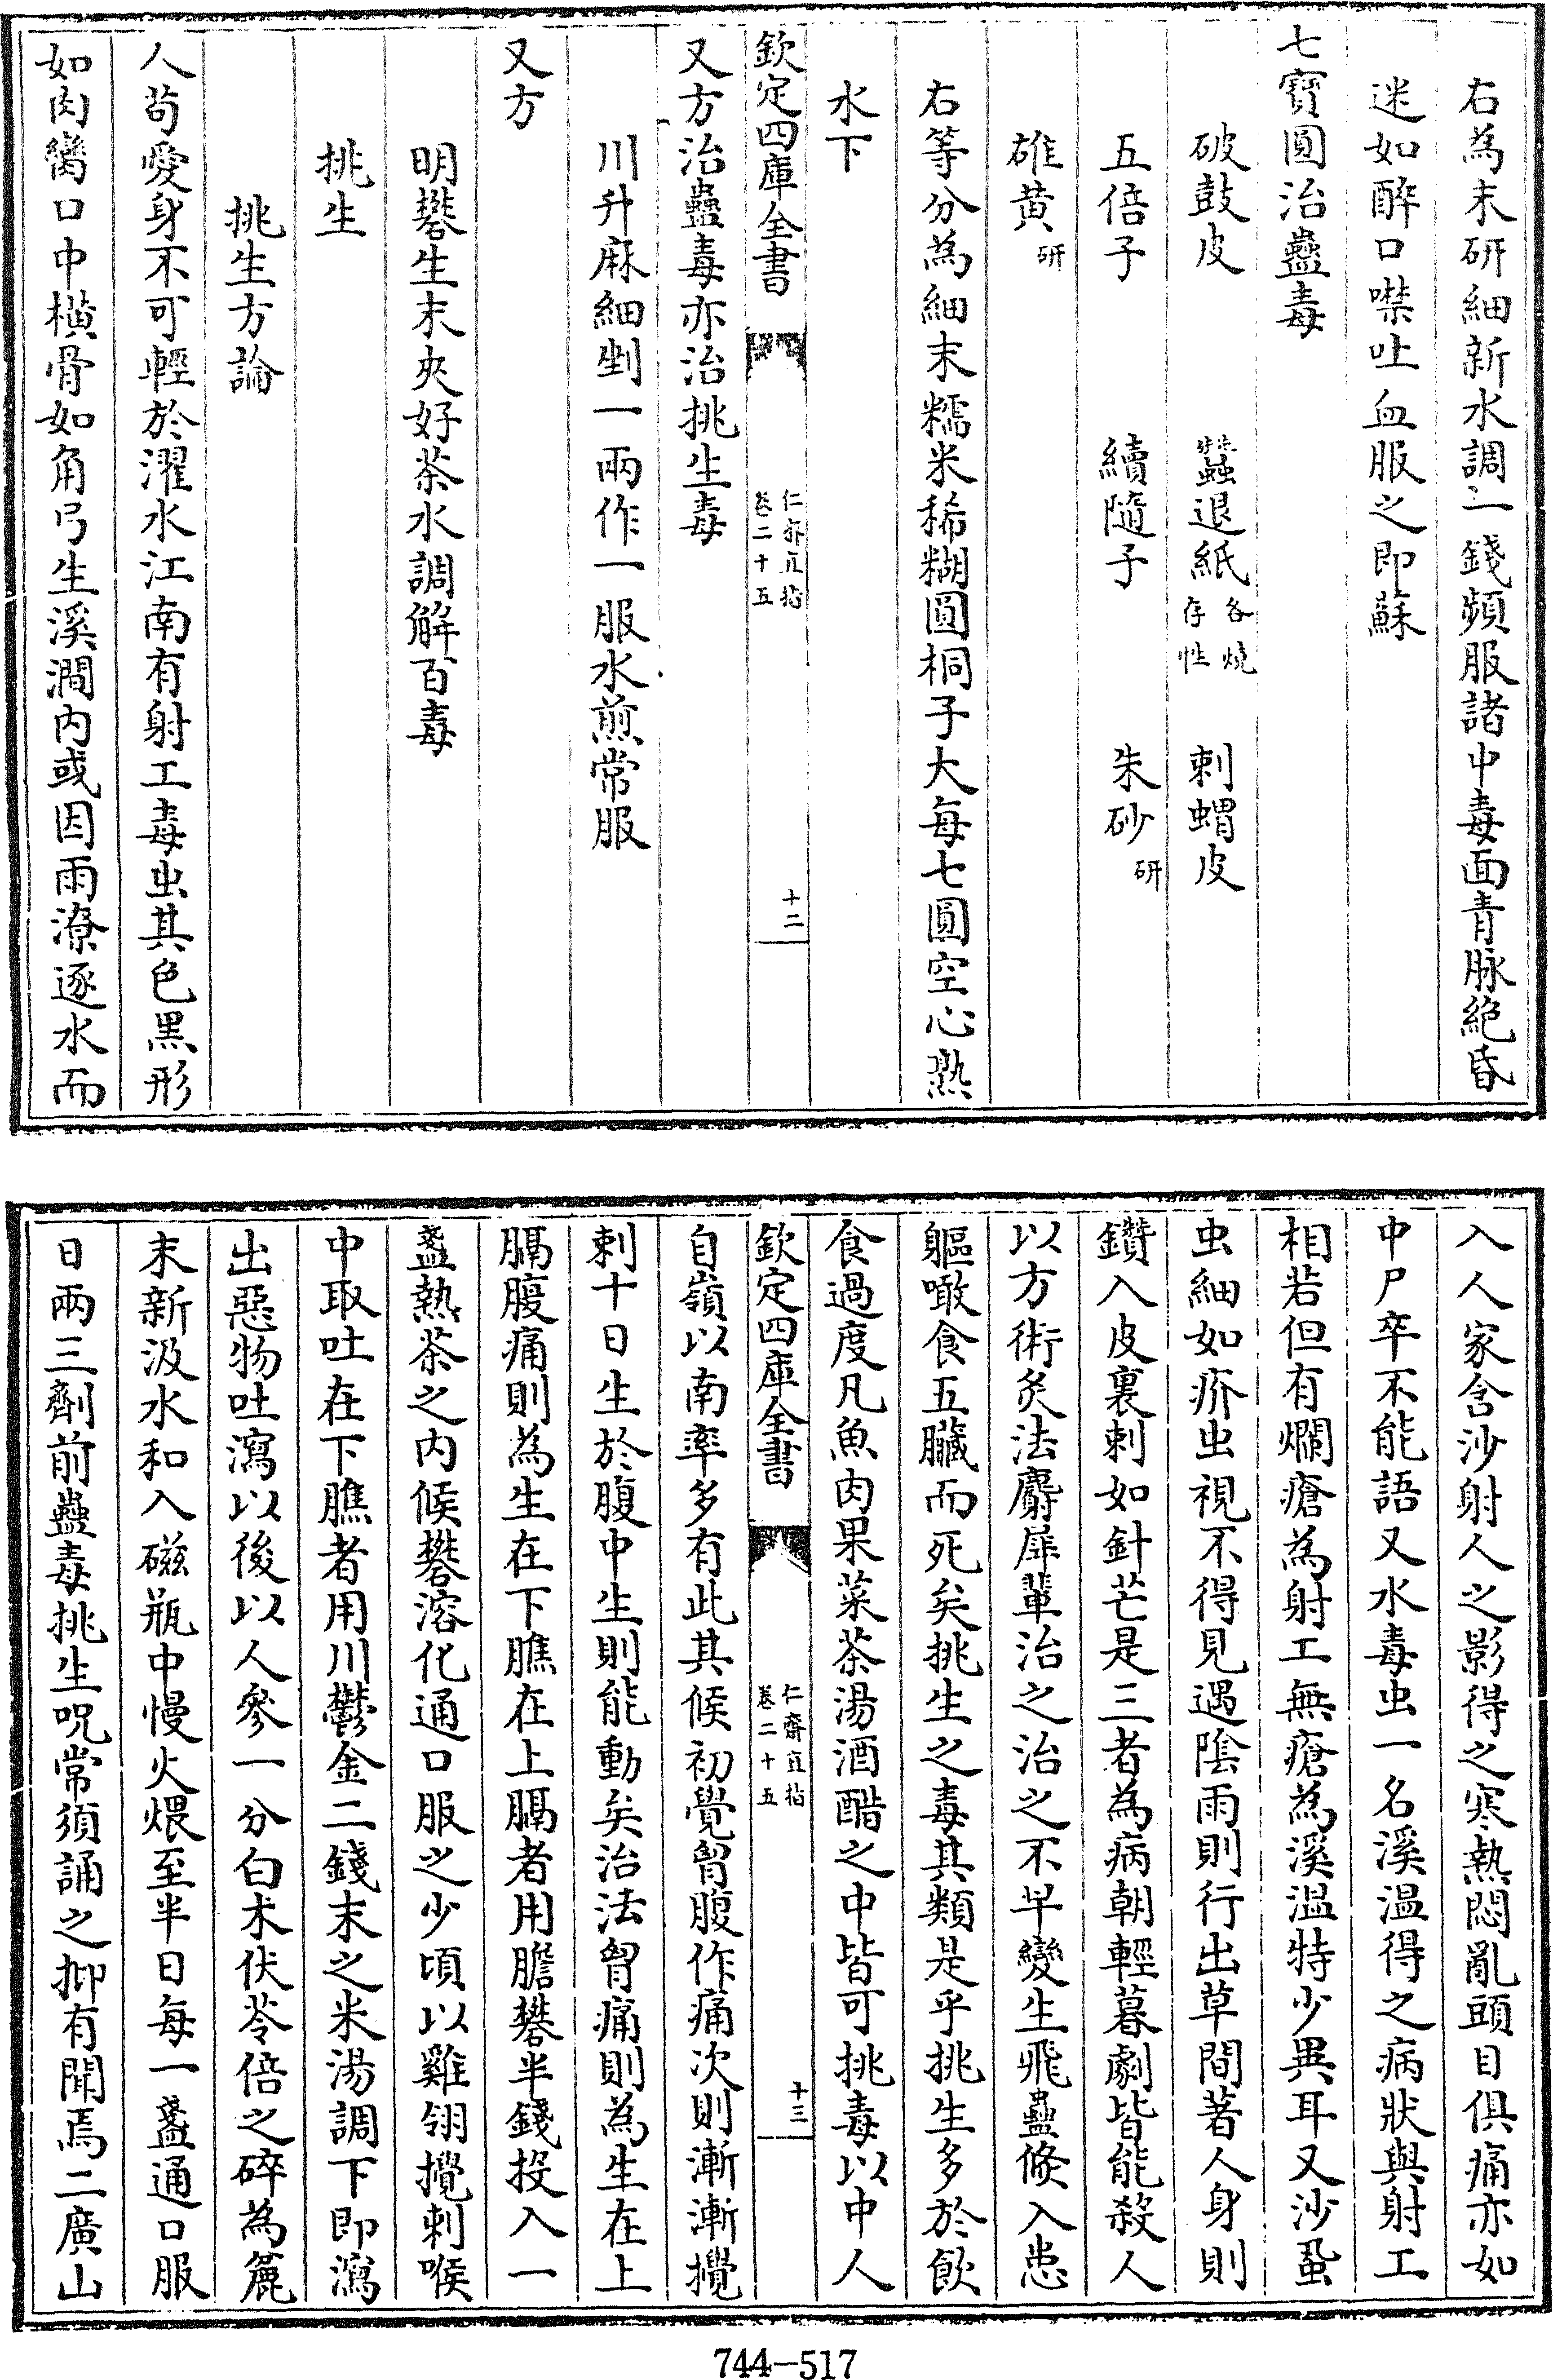 右為末研細新水調一錢頻服諸中毒面青脉絶昏
迷如醉口噤吐血服之即蘇
七寶圓治蠱毒
破鼓皮　蠶退紙各燒存性　刺蝟皮
五倍子　續隨子　朱砂研
雄黄研
右等分為細末糯米稀糊圓桐子大每七圓空心熟
水下
欽定四庫全書　仁齋直指卷二十五　十二
又方治蠱毒亦治挑生毒
川升麻細剉一兩作一服水煎常服
又方
明礬生末夾好茶水調解百毒
挑生
挑生方論
人茍愛身不可輕於濯水江南有射工毒虫其色黒形
如肉鴦口中横骨如角弓生溪澗内或因雨潦逐水而
入人家含沙射人之影得之寒熱悶亂頭目俱痛亦如
中尸卒不能語又水毒虫一名溪温得之病狀與射工
相若但有爛瘡為射工無瘡為溪温特少異耳又沙蝨
虫細如疥虫視不得見遇陰雨則行出草間著人身則
鑽入皮裏刺如針芒是三者為病朝輕暮劇皆能殺人
以方術灸法麝犀輩治之治之不早變生飛蠱倐入患
軀噉食五臟而死矣挑生之毒其類是乎挑生多於飲
食過度凡魚肉果菜茶湯酒醋之中皆可挑毒以中人
欽定四庫全書　仁齋直指卷二十五　十三
自嶺以南率多有此其候初覺胷腹作痛次則漸漸攪
刺十日生於腹中生則能動矣治法胷痛則為生在上
膈腹痛則為生在下膲在上膈者用膽礬半錢投入一
盞熱茶之内候礬溶化通口服之少頃以雞翎攪刺喉
中取吐在下膲者用川鬱金二錢末之米湯調下即瀉
出惡物吐瀉以後以人參一分白术伏苓倍之碎為麄
末新汲水和入磁瓶中慢火煨至半日每一盞通口服
日兩三劑前蠱毒挑生呪常須誦之抑有聞焉二廣山
744-517